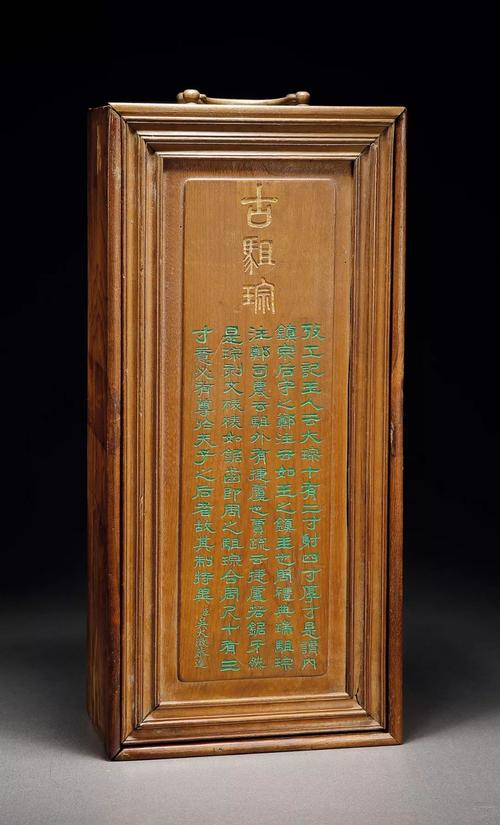 古駔琮
攷工記玉人云大琮十有二寸射四寸厚寸是謂內
鎮宗后守之鄭注云如王之鎮圭也周禮典瑞駔琮
注鄭司農云駔外有捷盧也賈疏云捷盧若鋸牙然
是琮刻文棱棱如鋸齒即周之駔琮合周尺十有三
寸意必有尊於天子之后者故其制特異 吳大澂